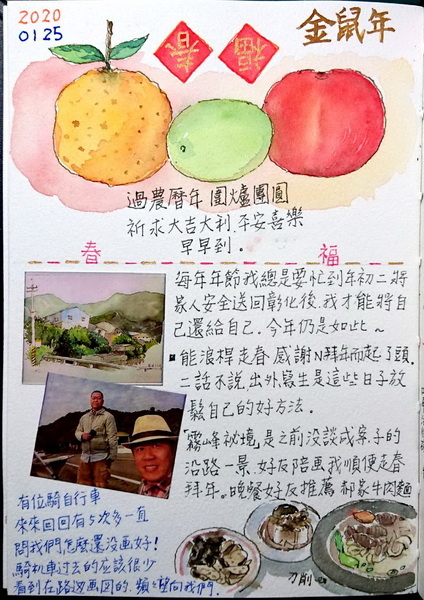 2020
0125
金鼠年
春
福
過農曆年 圍爐團圓
祈求大吉大利.平安喜樂
早早到。
春
福
每年年節我總是要忙到年初二將
家人安全送回彰化後.我才能將自
己還給自己.今年仍是如此~
能浪桿走春.感謝N拜年而起了頭.
二話不說.出外寫生是這些日子放
鬆自己的好方法.
「霧峰祕境」是之前沒談成案子的
沿路一景.好友陪画我順便走春
拜年。晚餐好友推薦 郝家牛肉麵
有位騎自行車
來來回回有5次多一直
問我們怎麼還沒画好!
騎机車过去的应該很少
看到在路边画図的.頻頻望向我們.
刀削